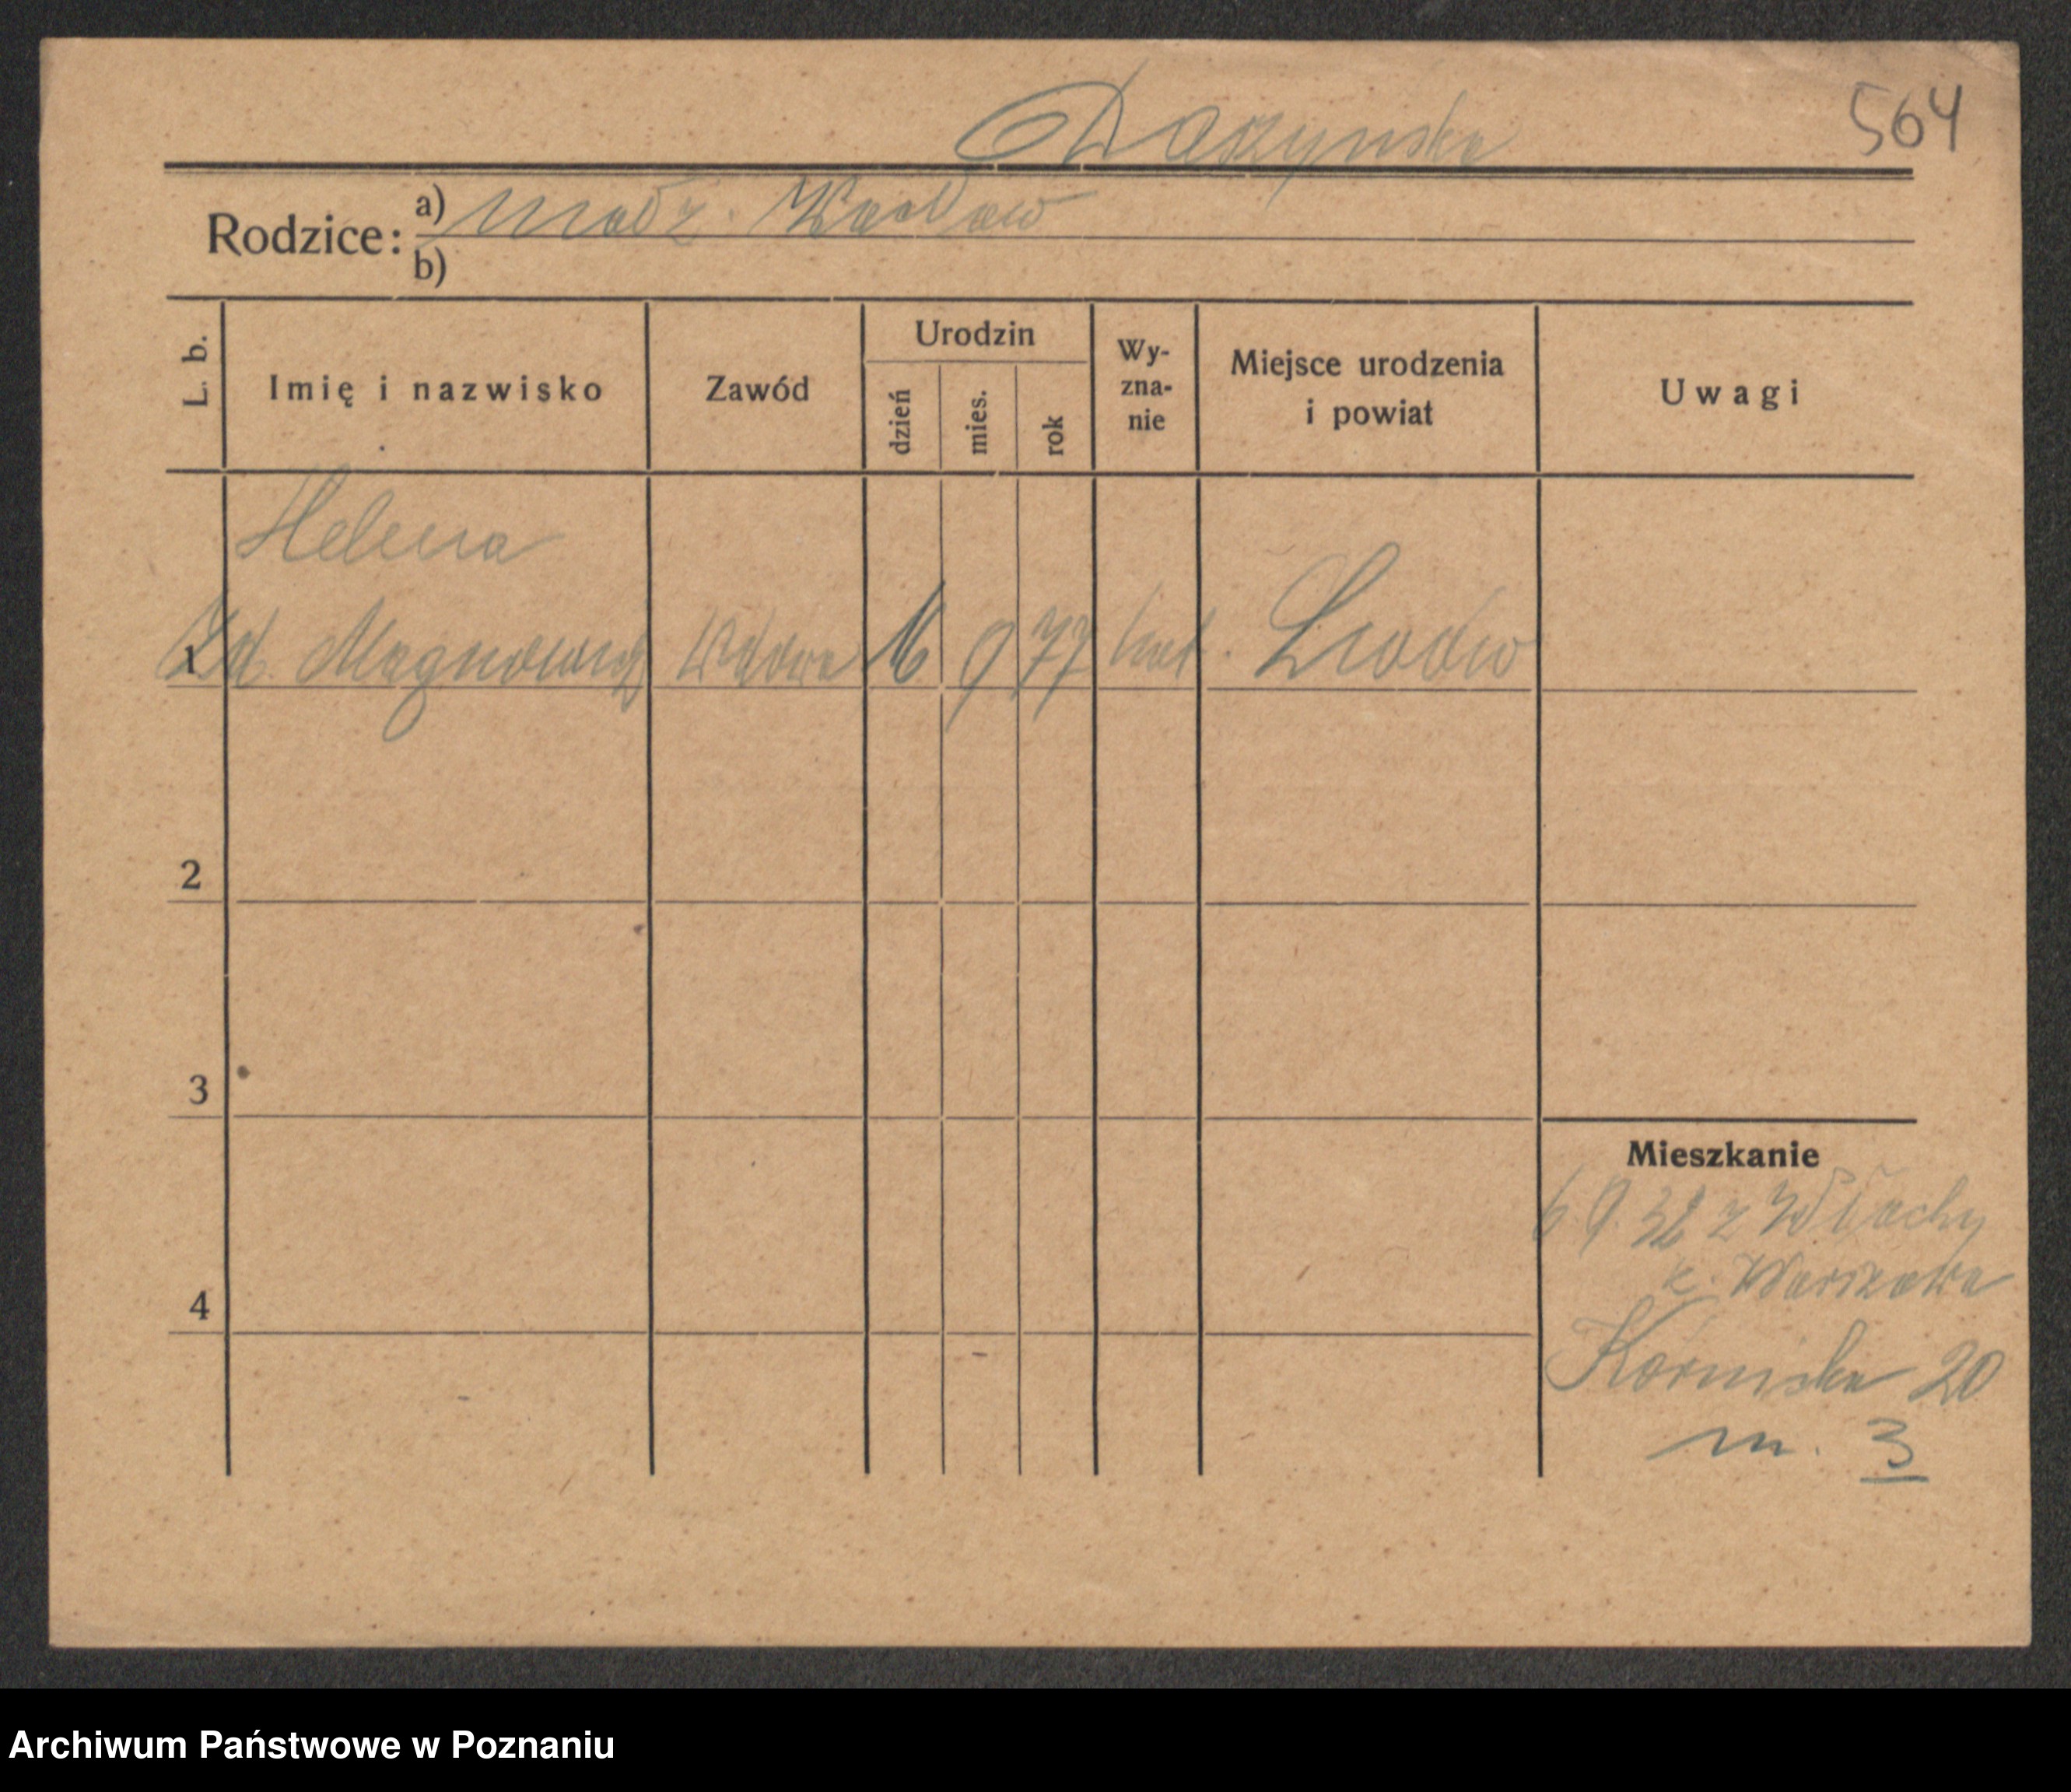 Daszyńska 564
Rodzice: a) Wacław
b)
L. b.
Imię i nazwisko
Zawód
Urodzin
dzień
mies.
rok
Wy-
zna-
nie
Miejsce urodzenia
i powiat
Uwagi
Helena
1 Wdowa 16 9 77 kat. Lwów
2
3
Mieszkanie
6 9 z Włochy
k. Warszawa
4
Kórnicka 20
m. 3
Archiwum Państwowe w Poznaniu